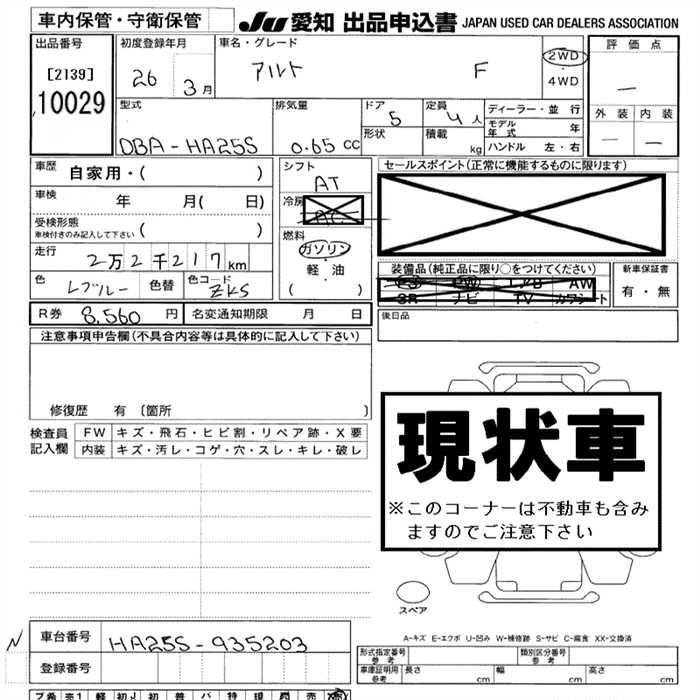 車内保管・守衛保管 JU 愛知 出品申込書 JAPAN USED CAR DEALERS ASSOCIATION
出品番号 初度登録年月 車名・グレード 評価点
[2139] 26 3月 アルト F 2WD ・ 4WD ―
10029 外装 内装
型式 排気量 ドア 5 定員 4人 ディーラー・並行 ― ―
DBA-HA25S 0.65 CC 形状 積載 kg モデル年式 年
ハンドル 左・右
車歴 自家用・( ) シフト AT セールスポイント(正常に機能するものに限ります)
車検 年 月( 日) 冷房 AC
受検形態 ( )
車検付きのみ記入して下さい
燃料
ガソリン
・
軽・油
( )
走行 2万2千217km
装備品(純正品に限り○をつけてください) 新車保証書
色 Lブルー 色替 色コード ZKS
AW 有・無
SR ナビ TV カワシート
R券 8,560 円 名変通知期限 月 日 後日品
注意事項申告欄(不具合内容等は具体的に記入して下さい)
修復歴 有 〔箇所 〕
現状車
※このコーナーは不動車も含み
ますのでご注意下さい
検査員 FW キズ・飛石・ヒビ割・リペア跡・X要
記入欄 内装 キズ・汚レ・コゲ・穴・スレ・キレ・破レ
スペア
A-キズ E-エクボ U-凹み W-補修跡 S-サビ C-腐食 XX-交換済
N 車台番号 HA25S-935203
登録番号
形式指定番号 参考 類別区分番号 参考
車庫証明用 参考 長さ cm 幅 cm 高さ cm